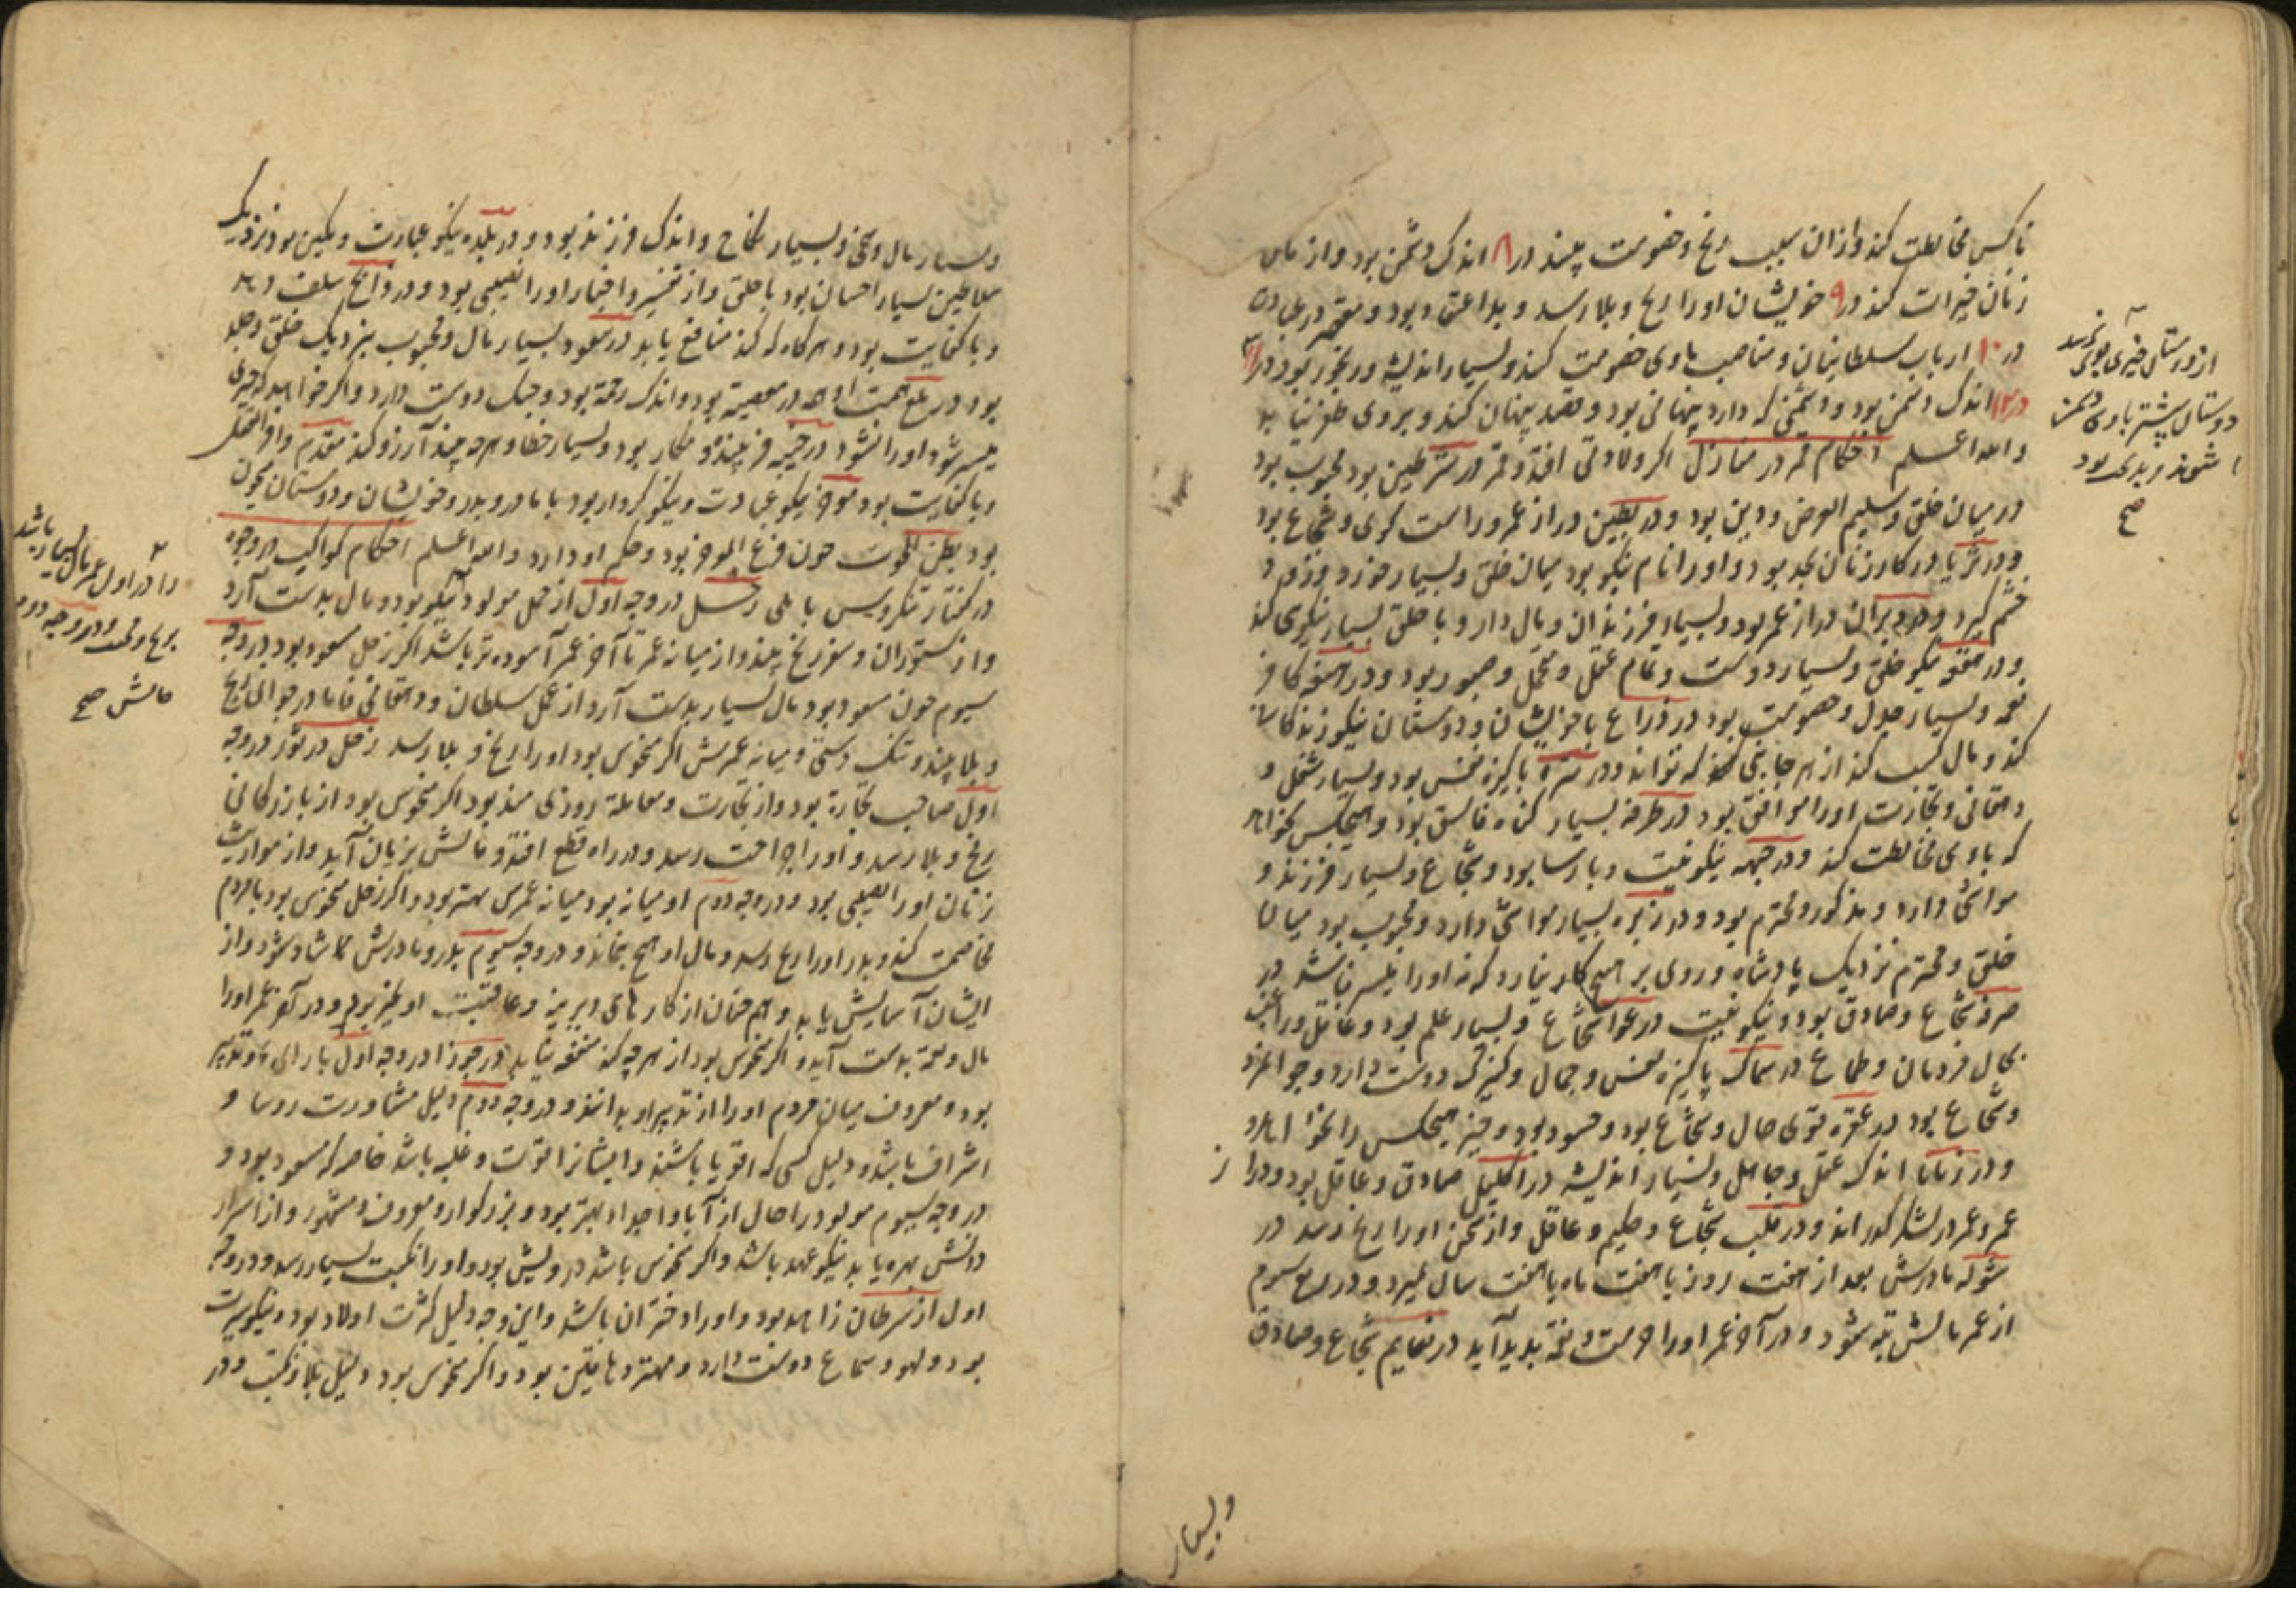 ناکس مخالطت کند و ازان سبب رنج و خصومت بیند در ۸ اندک دشمن بود و از مال
زنان خیرات کند در ۹ خویشان او را رنج و بلا رسد و بد اعتقاد بود و مقصر در عبادت
در ۱۰ ارباب سلطانیان و مناصب با وی خصومت کنند و بسیار اندیشه و رنجور بود در ۱۱
در ۱۲ اندک دشمن بود و دشمنی که دارد پنهانی بود و قصد پنهان کند و بر وی ظفر نیابد
والله اعلم احکام قمر در منازل اگر ولادتی افتد و قمر در شرطین بود محبوب بود
در میان خلق و سلیم العرض و دین بود و در بطین دراز عمر و راست کوی و شجاع بود
و در ثریا در کار زنان بجد بود و او را نام نیکو بود میان خلق و بسیار خورد و زود
خشم کیرد و در دبران دراز عمر بود و بسیار فرزندان و مال دار و با خلق بسیار نیکوی کند
و در هقعه نیکو خلق و بسیار دوست و تمام عقل و تحمل و صبور بود و در هنعه کافر
نعمه و بسیار جدل و خصومت بود در ذراع با خویشان و دوستان نیکو زندکانی
کند و مال کسب کند از هر جانبی که تواند و در نثره پاکیزه نفس بود و بسیار شغل و
دهقانی و تجارت او را موافق بود در طرفه بسیار کناه فاسق بود و هیچکس نخواهد
که با وی مخالطت کند و در جبهه نیکو نیت و پارسا بود و شجاع و بسیار فرزند و
مواشی دارد و مذکور و محترم بود و در زبره بسیار مواشی دارد و محبوب بود میان
خلق و محترم نزدیک پادشاه و روی بر هیچ کار نیارد که نه او را میسر باشد در
صرفه شجاع و صادق بود و نیکو نیت در عوا شجاع و بسیار علم بود و عاقل و راغب
بمال مردمان و طماع در سماک پاکیزه نفس و جمال و کنیزک دوست دارد و جوانمرد
و شجاع بود در غفره قوی حال و شجاع بود و حسود بود و خیر هیچکس را نخواهد
و در زبانا اندک عقل و جاهل و بسیار اندیشه در اکلیل صادق و عاقل بود و در
عمر در لشکر کذراند و در قلب شجاع و حکیم و عاقل و از سخن او را رنج رسد در
شوله مادرش بعد از هفت روز یا هفت ماه یا هفت سال بمیرد و در ربع سوم
از عمر مالش تبه شود و در آخر عمر او را حرمت و نعمة بدید آید در نعایم شجاع و صادق
وبسیار
از دوستان خیری بوی نرسد
دوستان بیشتر با وی دشمن
شوند و بدی بود
صح
و بسیار مال و سخی و بسیار نکاح و اندک فرزند بود و در بلده نیکو عبارت و مکین بود نزدیک
سلاطین بسیار احسان بود با خلق و از تفسیر و اخبار او را نصیبی بود و در ذابح
و با کفایت بود و هر کاه که کند منافع یابد در سعود بسیار مال و محبوب بنزدیک خلق
بود در بلع همت او همه در معصیة بود و اندک رحمة بود و جنک دوست دارد و اکر خواهد که چیزی
میسر شود او را نشود در خبیه فریبنده و مکار بود و بسیار خطا و هر چه بیند آرزو کند مقدم وافر العقل
و با کفایت بود موخر نیکو عبادت و نیکو کردار بود با مادر و پدر و خویشان و دوستان
بود بطن الحوت چون فرغ المؤخر بود و حکم او دارد والله اعلم احکام کواکب در وجوه
در کفتار تنکروس بابلی زحل در وجه اول از حمل مولود نیکو بود و مال بدست آرد
و از ستوران و سفر رنج بیند و از میانه عمر تا آخر عمر آسوده تر باشد اکر زحل مسعود بود در وجه
سیوم چون مسعود بود مال بسیار بدست آرد از عمل سلطان و دهقانی فاما در جوانی رنج
و بلا بیند و تنک دستی و میانه عمرش اکر منحوس بود او را رنج و بلا رسد زحل در ثور در وجه
اول صاحب تجارة بود و از تجارت و معامله روزی مند بود اکر منحوس بود از بازرکانی
رنج و بلا رسد و او را جراحت رسد و در راه قطع افتد و مالش بزیان آید و از مواریث
زنان او را نصیبی بود و در وجه دوم او میانه بود میانه عمرش بهتر بود و اکر زحل منحوس بود با مردم
مخاصمت کند و پدر او را رنج رسد و مال او هیچ نماند و در وجه سیوم پدر و مادرش
ایشان آسایش یابد و هم چنان از کارهای دیرینه و عاقبت او بخیر بود و در آخر عمر او را
مال و نعمة بدست آید و اکر منحوس بود از هر چه کند منفعه نیابد در جوزا در وجه اول با رای و تدبیر
بود و معروف میان مردم او را از تدبیر او بدانند و در وجه دوم دلیل مشاورت روسا و
اشراف باشد و دلیل کسی که اقویا باشند و ایشانرا قوت و غلبه باشد خاصه که مسعود بود و
در وجه سیوم مولود را حال از آبا و اجداد بهتر بود و بزرکوار و معروف و مشهور و از اسرار
دانش بهره یابد نیکو عهد باشد و اکر منحوس باشد درویش بود و او را نکبت بسیار رسد و در وجه
اول از سرطان زاهد بود و او را دختران باشد و این وجه دلیل کثرت اولاد بود و نیکو سیرت
بود و لهو و سماع دوست دارد و مهتر دهاقین بود و اکر منحوس بود دلیل بلا و نکبت و در
را در اول عمر مال بسیار باشد
مالش صح